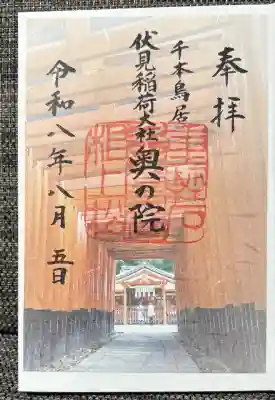 奉拝
千本鳥居
伏見稲荷大社 奥の院
令和八年八月五日